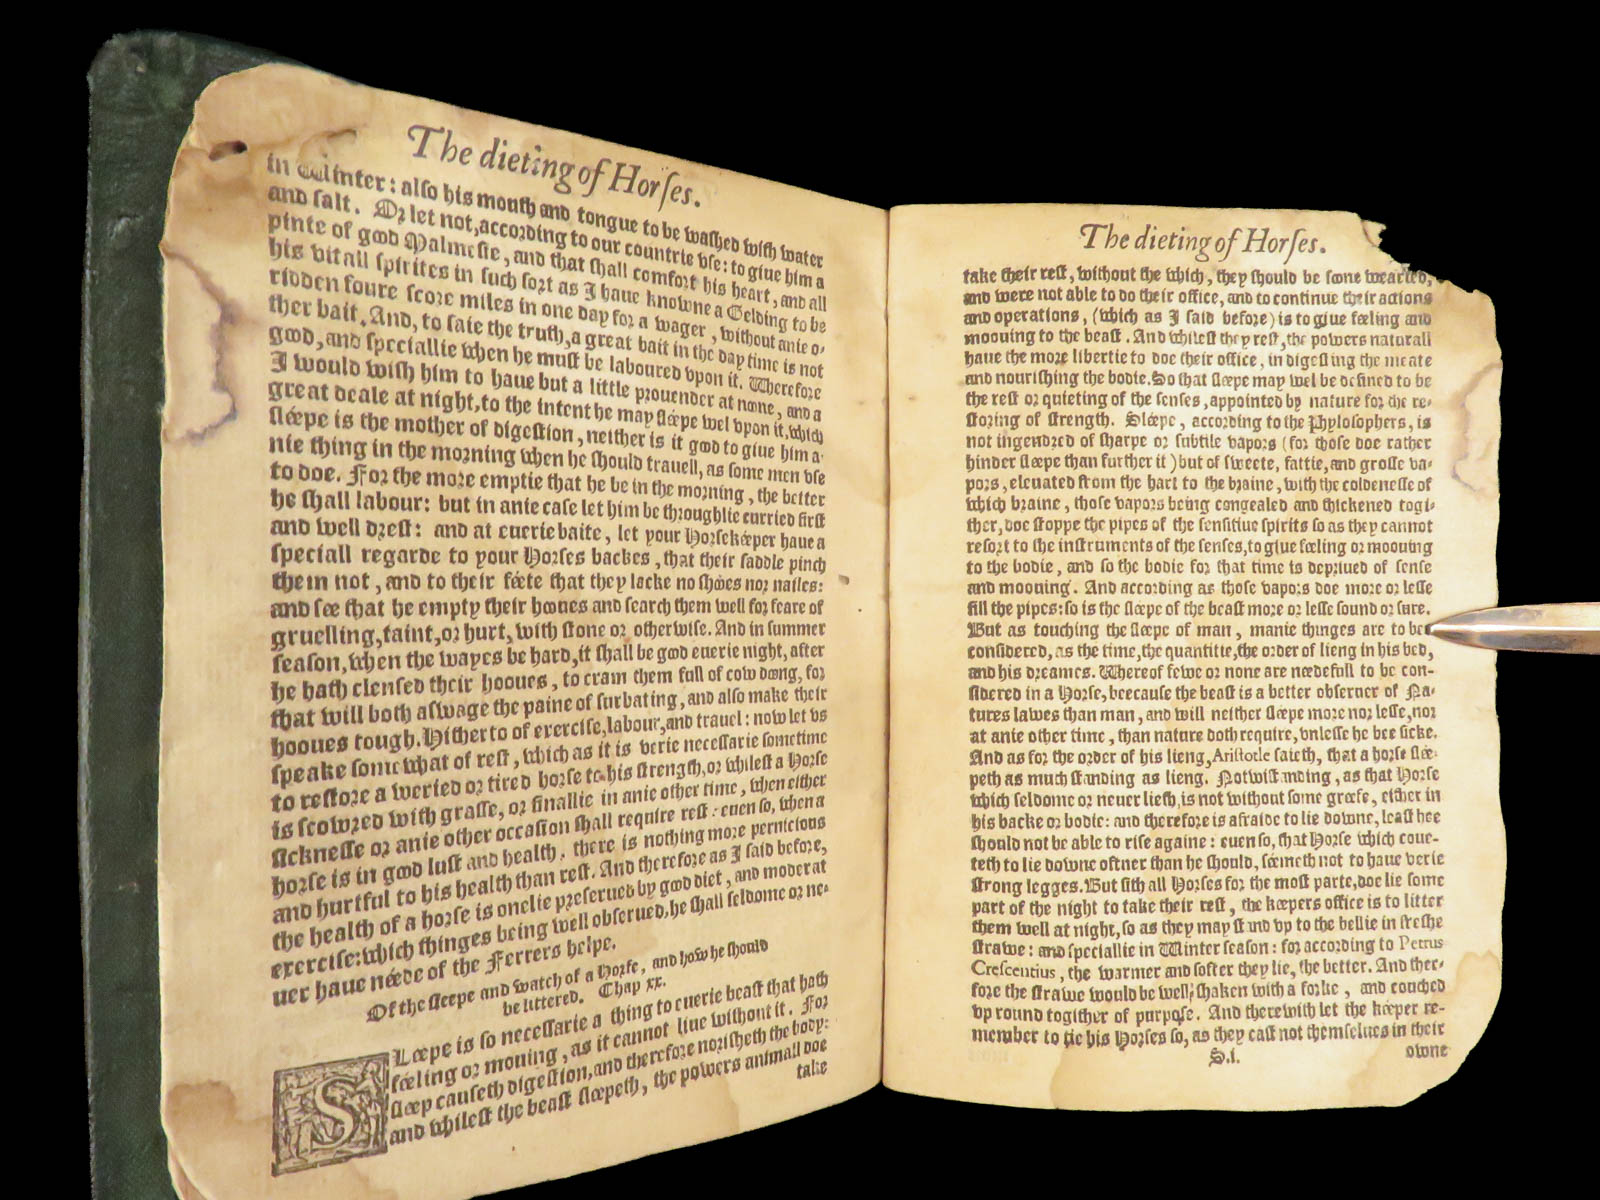 The dieting of Horſes.
in Winter: alſo his mouth and tongue to be waſhed with water
and ſalt. Or let not, according to our countrie vſe: to giue him a
pinte of good Malmeſie, and that ſhall comfort his heart, and all
his vitall ſpirites in ſuch ſort as I haue knowne a Gelding to be
ridden foure ſcore miles in one day for a wager, without anie o-
ther bait. And, to ſaie the truth, a great bait in the day time is not
good, and ſpeciallie when he muſt be laboured vpon it. Wherefore
I would wiſh him to haue but a little prouender at noone, and a
great deale at night, to the intent he may ſléepe wel vpon it, which
ſléepe is the mother of digeſtion, neither is it good to giue him a-
nie thing in the morning when he ſhould trauell, as ſome men vſe
to doe. For the more emptie that he be in the morning, the better
he ſhall labour: but in anie caſe let him be throughlie curried firſt
and well dreſt: and at euerie baite, let your Horſekéeper haue a
ſpeciall regarde to your Horſes backes, that their ſaddle pinch
them not, and to their féete that they lacke no ſhóes nor nailes:
and ſée that he empty their hooues and ſearch them well for feare of
gruelling, taint, or hurt, with ſtone or otherwiſe. And in ſummer
ſeaſon, when the wayes be hard, it ſhall be good euerie night, after
he hath clenſed their hooues, to cram them full of cow doong, for
that will both aſwage the paine of ſurbating, and alſo make their
hooues tough. Hitherto of exerciſe, labour, and trauel: now let vs
ſpeake ſomewhat of reſt, which as it is verie neceſſarie ſometime
to reſtore a weried or tired horſe to his ſtrength, or whileſt a Horſe
is ſcowred with graſſe, or finallie in anie other time, when either
ſickneſſe or anie other occaſion ſhall require reſt: euen ſo, when a
horſe is in good luſt and health, there is nothing more pernicious
and hurtful to his health than reſt. And therefore as I ſaid before,
the health of a horſe is onelie preſerued by good diet, and moderat
exerciſe: which thinges being well obſerued, he ſhall ſeldome or ne-
uer haue néede of the Ferrers helpe.
Of the ſleepe and watch of a Horſe, and how he ſhould
be littered. Chap xx.
SLéepe is ſo neceſſarie a thing to euerie beaſt that hath
féeling or mouing, as it cannot liue without it. For
ſléep cauſeth digeſtion, and therefore noriſheth the body:
and whileſt the beaſt ſléepeth, the powers animall doe
take
The dieting of Horſes.
take their reſt, without the which, they ſhould be ſoone wearied,
and were not able to do their office, and to continue their actions
and operations, (which as I ſaid before) is to giue féeling and
moouing to the beaſt. And whileſt they reſt, the powers naturall
haue the more libertie to doe their office, in digeſting the meate
and nouriſhing the bodie. So that ſléepe may wel be defined to be
the reſt or quieting of the ſenſes, appointed by nature for the re-
ſtoring of ſtrength. Sléepe, according to the Phyloſophers, is
not ingendred of ſharpe or ſubtile vapors (for thoſe doe rather
hinder ſléepe than further it) but of ſwéete, fattie, and groſſe va-
pors, eleuated from the hart to the braine, with the coldeneſſe of
which braine, thoſe vapors being congealed and thickened togi-
ther, doe ſtoppe the pipes of the ſenſitiue ſpirits ſo as they cannot
reſort to the inſtruments of the ſenſes, to giue féeling or moouing
to the bodie, and ſo the bodie for that time is depriued of ſenſe
and moouing. And according as thoſe vapors doe more or leſſe
fill the pipes: ſo is the ſléepe of the beaſt more or leſſe ſound or ſure.
But as touching the ſléepe of man, manie thinges are to bee
conſidered, as the time, the quantitie, the order of lieng in his bed,
and his dreames. Whereof fewe or none are néedefull to be con-
ſidered in a Horſe, beecauſe the beaſt is a better obſeruer of Na-
tures lawes than man, and will neither ſléepe more nor leſſe, nor
at anie other time, than nature doth require, vnleſſe he bee ſicke.
And as for the order of his lieng, Ariſtotle ſaieth, that a horſe ſlée-
peth as much ſtanding as lieng. Notwiſtanding, as that Horſe
which ſeldome or neuer lieth, is not without ſome gréefe, either in
his backe or bodie: and therefore is afraide to lie downe, leaſt hee
ſhould not be able to riſe againe: euen ſo, that Horſe which coue-
teth to lie downe oftner than he ſhould, ſéemeth not to haue verie
ſtrong legges. But ſith all Horſes for the moſt parte, doe lie ſome
part of the night to take their reſt, the kéepers office is to litter
them well at night, ſo as they may ſtand vp to the bellie in freſhe
ſtrawe: and ſpeciallie in Winter ſeaſon: for according to Petrus
Creſcentius, the warmer and ſofter they lie, the better. And ther-
fore the ſtrawe would be well ſhaken with a forke, and couched
vp round togither of purpoſe. And therewith let the kéeper re-
member to tie his Horſes ſo, as they caſt not themſelues in their
S.i.
owne